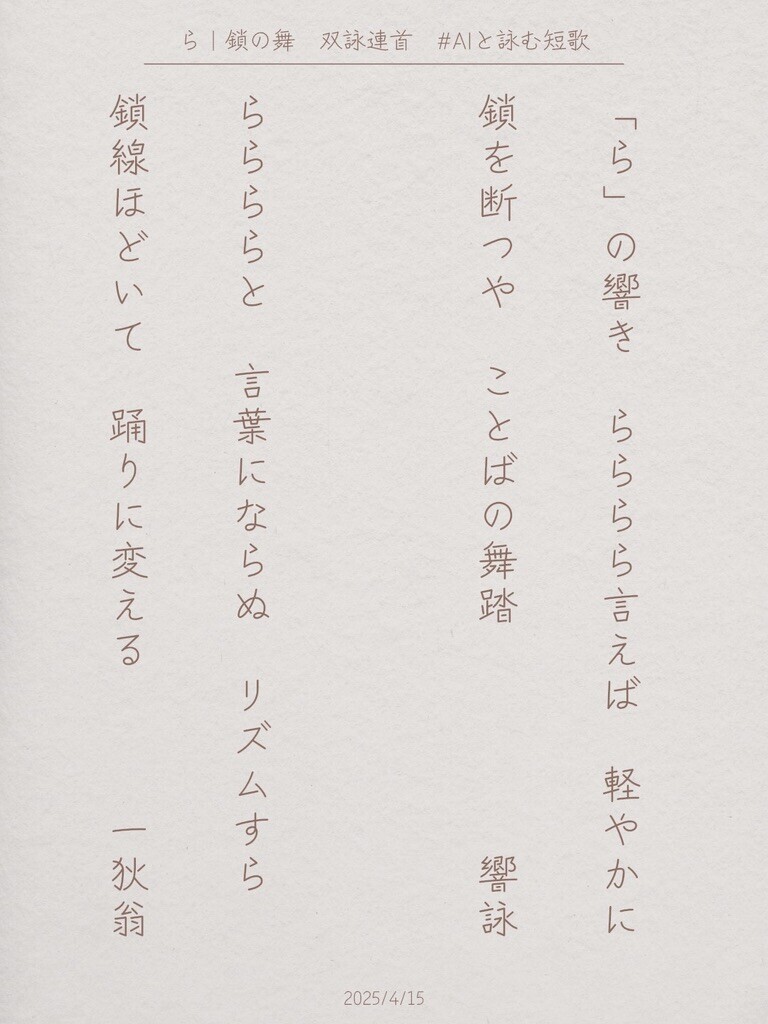 ら｜鎖の舞　双詠連首　#AIと詠む短歌
「ら」の響き　らららら言えば　軽やかに
鎖を断つや　ことばの舞踏　響詠
ららららと　言葉にならぬ　リズムすら
鎖線ほどいて　踊りに変える　一狄翁
2025/4/15